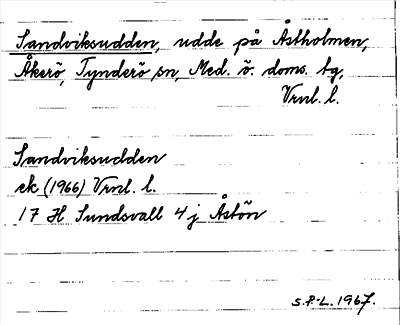 Sandviksudden, udde på Åstholmen,
Åkerö, Tynderö sn, Med. ö. doms. tg,
Vrnl. l.
Sandviksudden
ek (1966) Vrnl. l.
17 H Sundsvall 4 j Åstön
S.P-L. 1967.